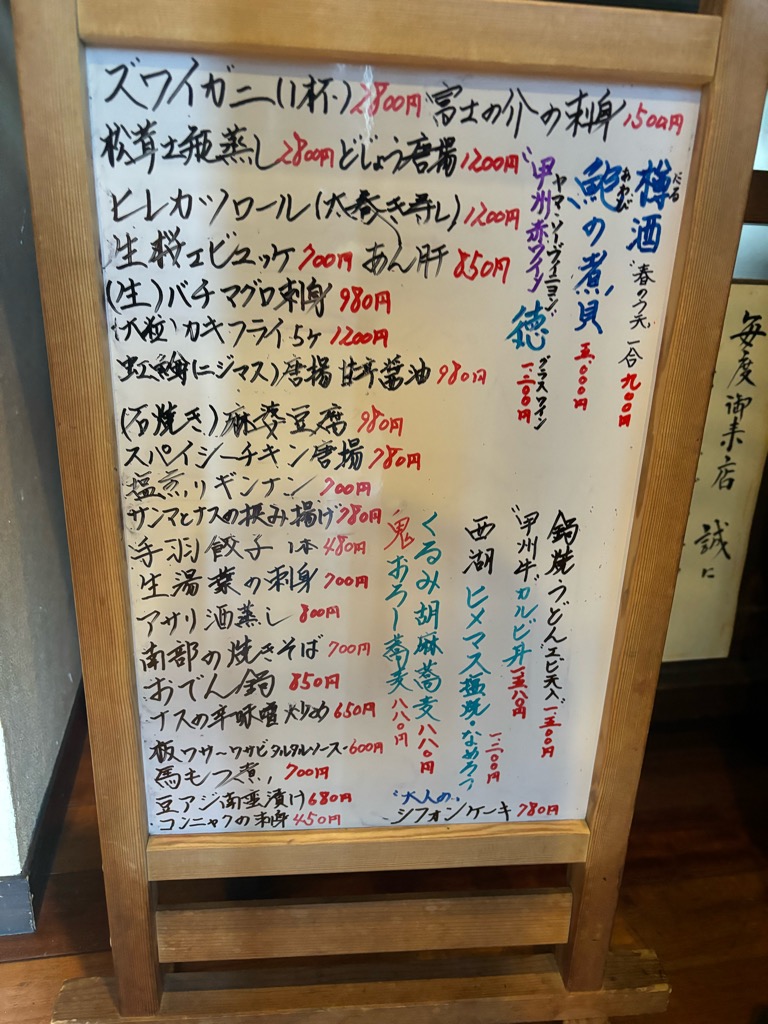 ズワイガニ(1杯)2800円 富士の介の刺身1500円
松茸土瓶蒸し2800円 どじょう唐揚1200円
ヒレカツロール(太巻き寿し)1200円
生桜エビユッケ700円 あん肝850円
(生)バチマグロ刺身980円
(大粒)カキフライ5ヶ1200円
虹鱒(ニジマス)唐揚甘辛醤油980円
(石焼き)麻婆豆腐980円
スパイシーチキン唐揚780円
塩煎りギンナン700円
サンマとナスの挟み揚げ780円
手羽餃子1本480円
生湯葉の刺身700円
アサリ酒蒸し800円
南部の焼きそば700円
おでん鍋850円
ナスの辛味噌炒め650円
板ワサ〜ワサビタルタルソース〜600円
馬もつ煮700円
豆アジ南蛮漬け680円
コンニャクの刺身450円
樽酒 だる
"春の天 一合九00円
鮑の煮貝 あわび 五.000円
"甲州赤ワイン
ヤマ・ソーヴィニヨン"
徳 グラスワイン一.三00円
鍋焼うどん"エビ天入"一.五00円
"甲州牛"カルビ丼一.五八0円
西湖 ヒメマス塩焼・なめろう一.三00円
くるみ胡麻蕎麦八八0円
鬼おろし蕎麦八八0円
"大人の"
シフォンケーキ780円
毎度御来店 誠に